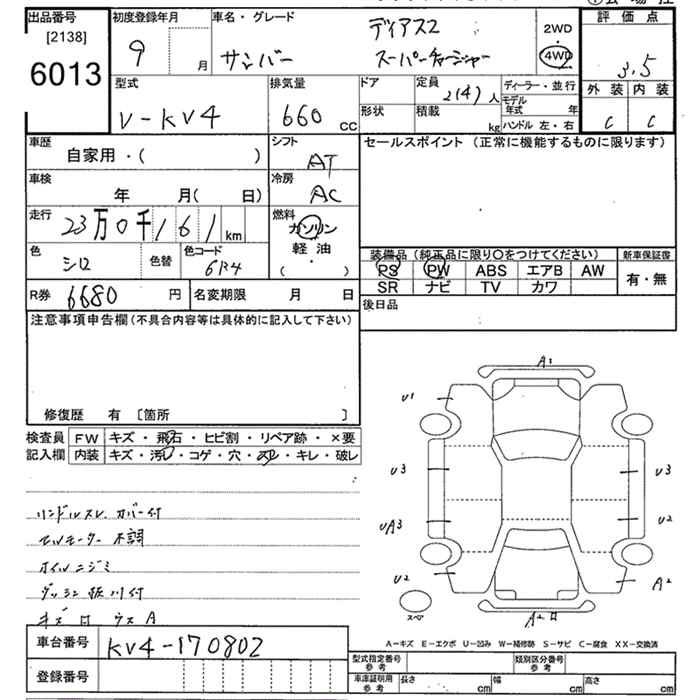 出品番号
[2138]
6013
初度登録年月
9 月
車名・グレード
サンバー
ディアス2
スーパーチャージャー
2WD
・
4WD
評価点
3.5
外装 内装
C C
型式
V-KV4
排気量
660 CC
ドア
形状
定員
2(4)人
積載
kg
ディーラー・並行
モデル年式 年
ハンドル 左・右
車歴
自家用・( )
シフト
AT
車検
年 月( 日)
冷房
AC
走行
23万0千161km
燃料
ガソリン
軽油
・
( )
色
シロ
色替
色コード
6R4
R券 6680 円
名変期限 月 日
セールスポイント (正常に機能するものに限ります)
装備品(純正品に限り〇をつけてください)
新車保証書
PS PW ABS エアB AW
SR ナビ TV カワ
有・無
後日品
注意事項申告欄(不具合内容等は具体的に記入して下さい)
修復歴 有 [箇所 ]
検査員記入欄
FW キズ・飛石・ヒビ割・リペア跡・×要
内装 キズ・汚レ・コゲ・穴・スレ・キレ・破レ
ハンドルスレ カバー付
セルモーター 不調
オイルニジミ
車台番号
KV4-170802
登録番号
A1
U1
U3 U3
UA3 U2
U2 A2
スペア
A2
A-キズ E-エクボ U-凹み W-補修跡 S-サビ C-腐食 XX-交換済
型式指定番号 参考
類別区分番号 参考
車庫証明用 参考
長さ cm
幅 cm
高さ cm